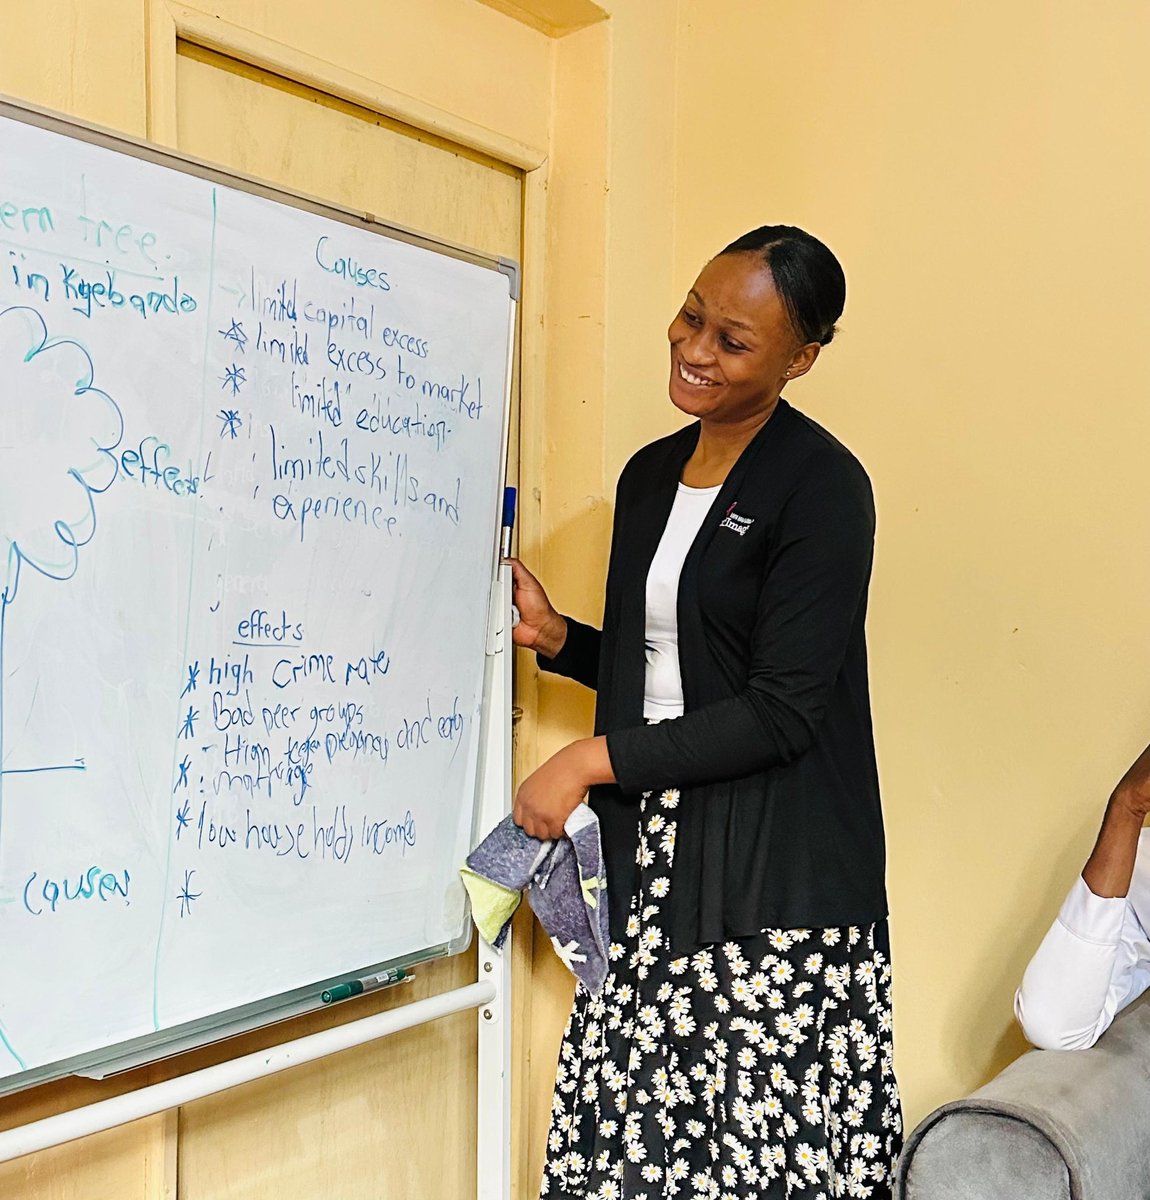 em tree.
in Kyebando
effects
causes
Causes.
→ limited capital excess
* limited excess to market
* limited education.
* limited skills and
experience.
effects
* high crime rate
* Bad peer groups
- High teen pregnancy and early
* marriage
* low household incomes
*